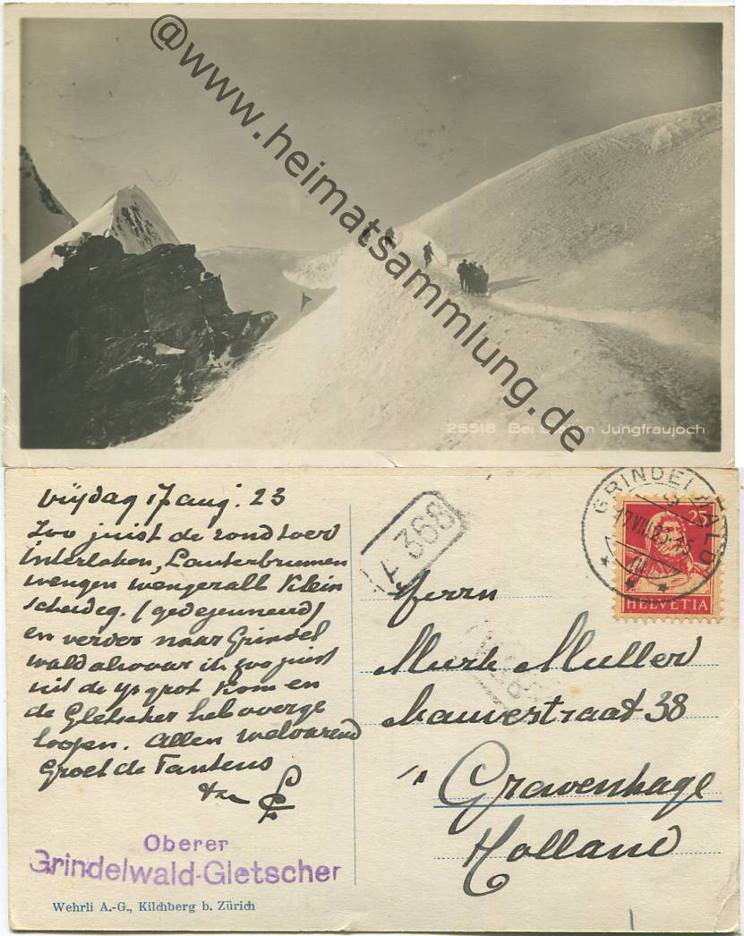 @www.heimatsammlung.de
25518 Bei Station Jungfraujoch
Vrijdag 17 aug. 23
Zoo juist de rondtoer
Interlaken, Lauterbrunnen
wengen wengeralb Klein
scheideg. (gedejeuneerd)
en verder naar Grindel
wald alwaar ik zoo juist
uit de ijsgrot kom en
de Gletscher heb overge
loopen. Allen welvarend
Groet de Tantens
A 368
GRINDELWALD
17.VIII.23
25
HELVETIA
Herrn
Murk Muller
Mauvestraat 38
's Gravenhage
Holland
Oberer
Grindelwald-Gletscher
Wehrli A.-G., Kilchberg b. Zürich